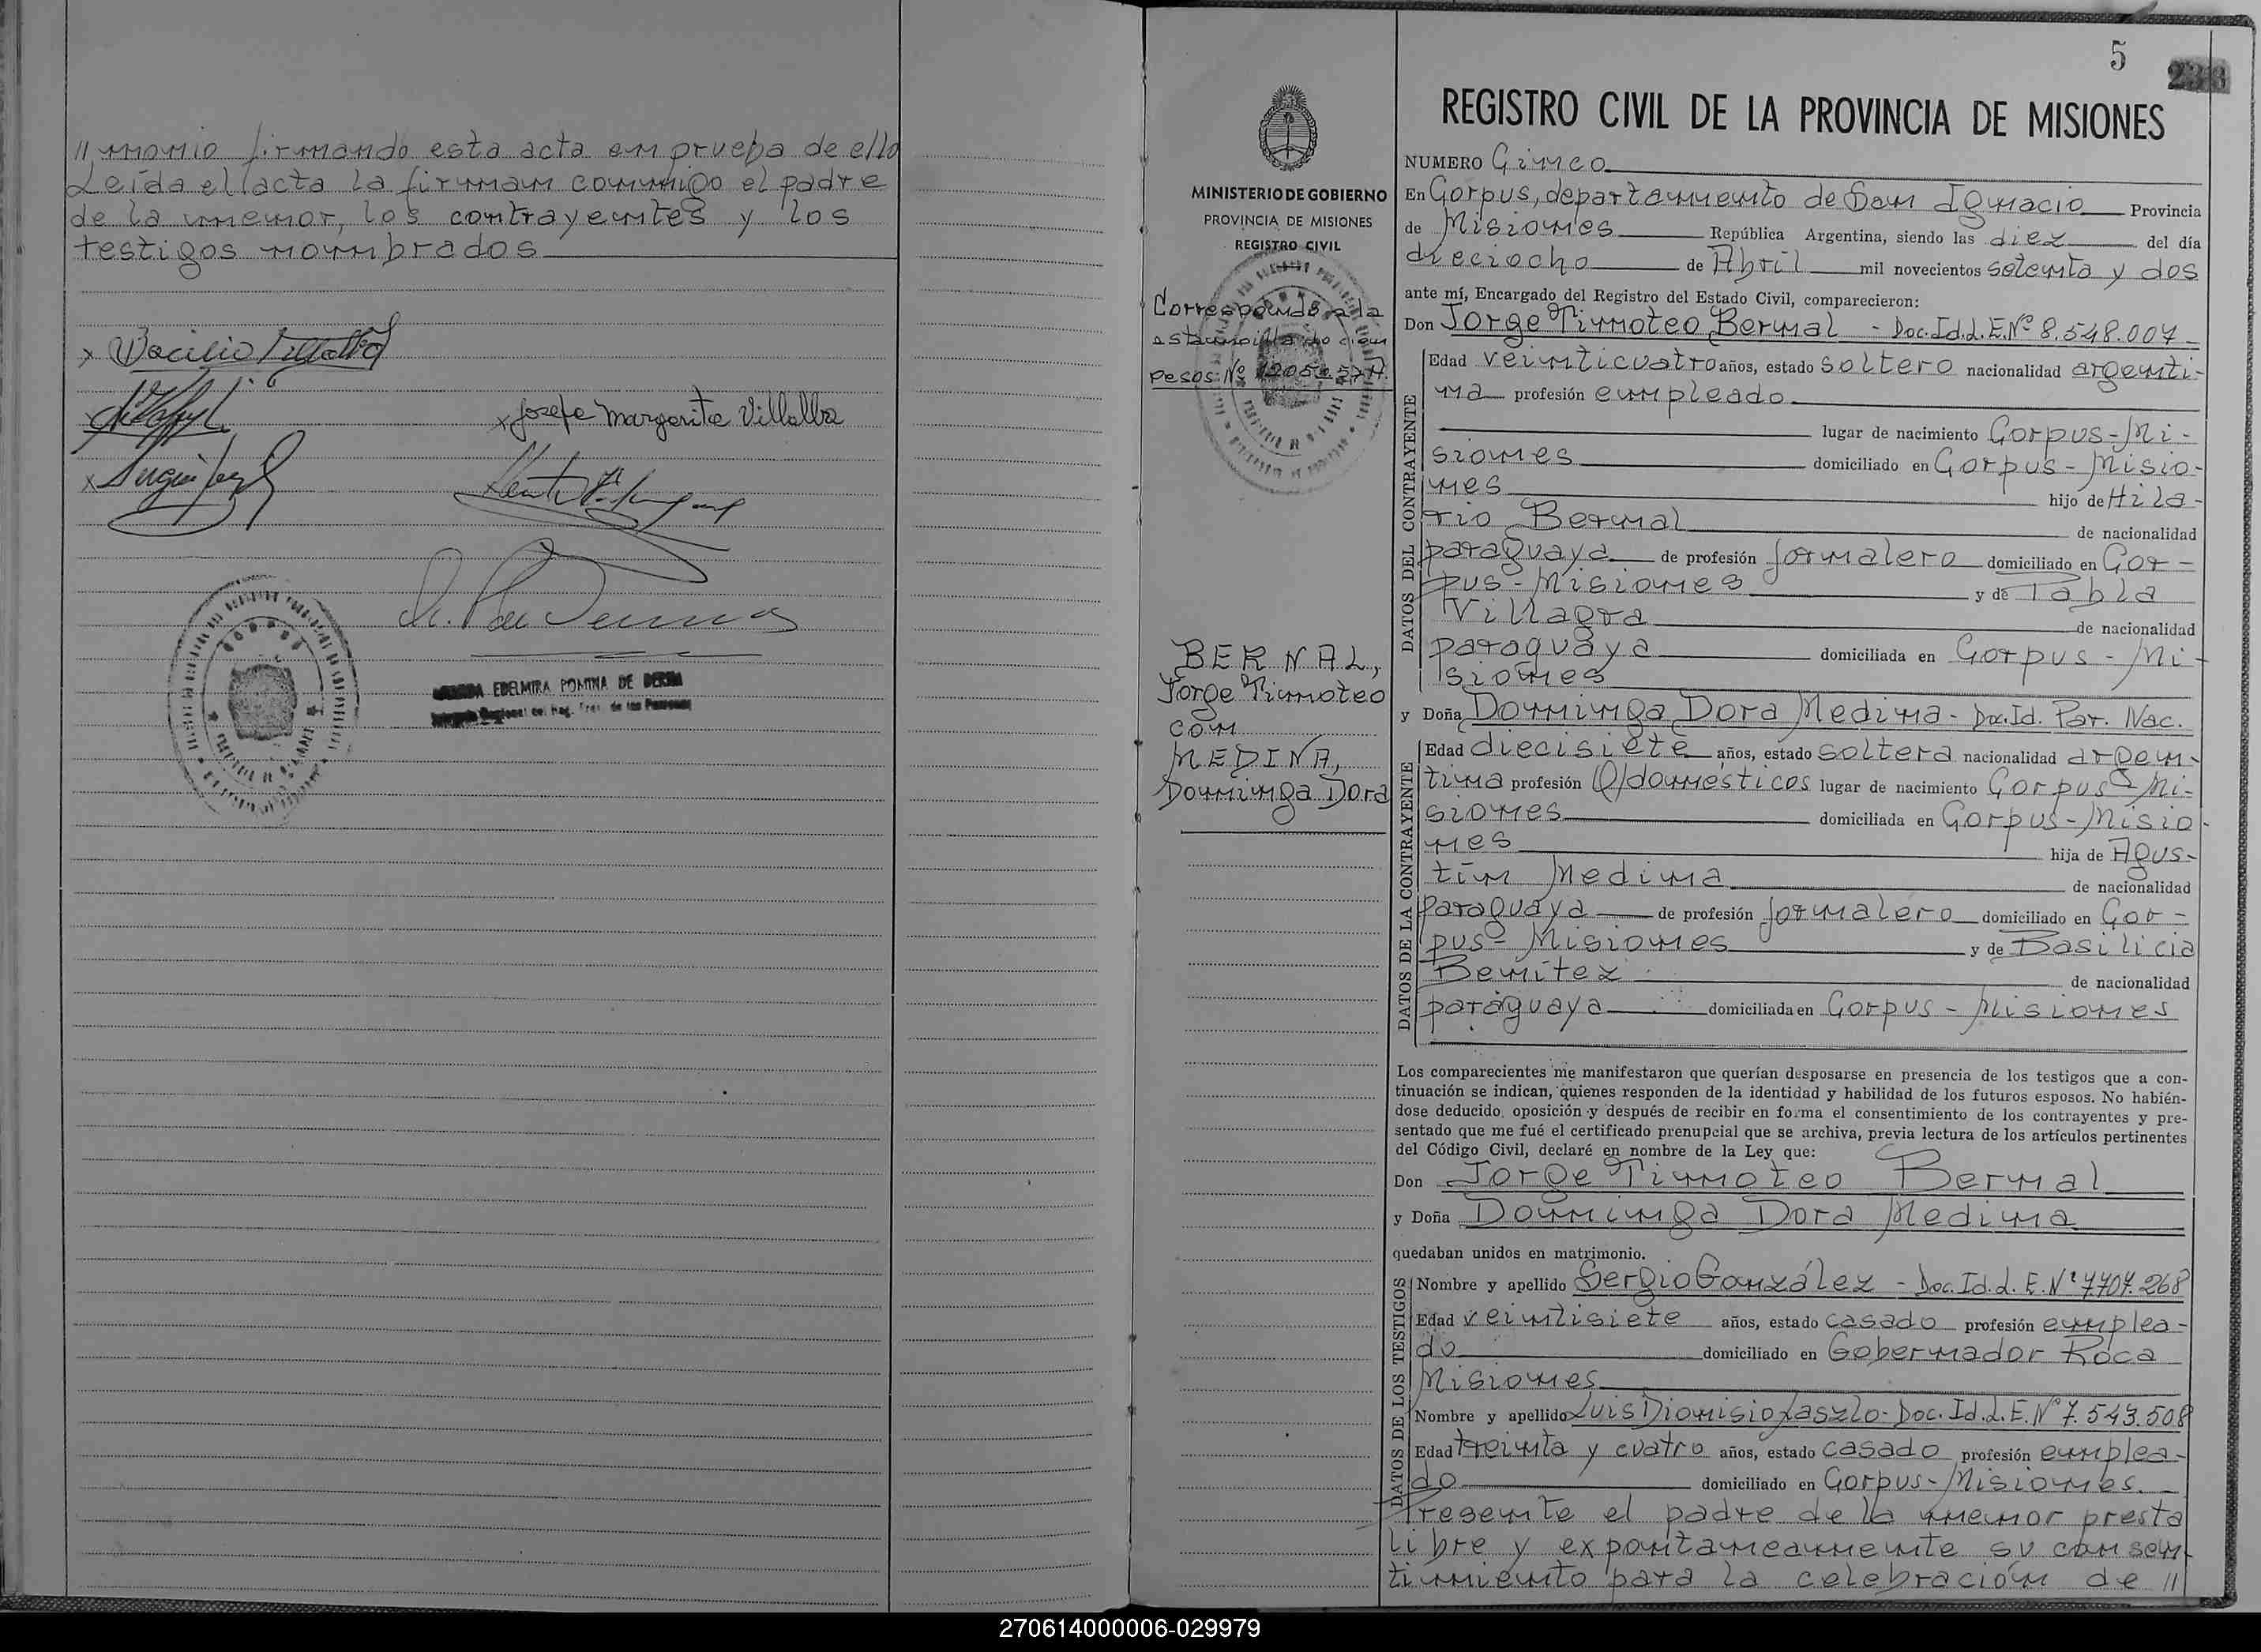 //monio firmando esta acta en prueba de ello
Leída el acta la firman conmigo el padre
de la menor, los contrayentes y los
testigos nombrados
x
x Josefa Margarita Villalba
x
EDELMIRA POMINA DE
5
233
REGISTRO CIVIL DE LA PROVINCIA DE MISIONES
MINISTERIO DE GOBIERNO
PROVINCIA DE MISIONES
REGISTRO CIVIL
Corresponde a la
estampilla de cien
pesos Nº
BERNAL,
Jorge Timoteo
con
MEDINA,
Dominga Dora
NUMERO Cinco
En Corpus, departamento de San Ignacio Provincia
de Misiones República Argentina, siendo las diez del día
dieciocho de Abril mil novecientos setenta y dos
ante mí, Encargado del Registro del Estado Civil, comparecieron:
Don Jorge Timoteo Bernal - Doc. Id. L. E. Nº 8.548.007
DATOS DEL CONTRAYENTE
Edad veinticuatro años, estado soltero nacionalidad argenti-
na profesión empleado
lugar de nacimiento Corpus-Mi-
siones domiciliado en Corpus-Misio-
nes hijo de Hila-
rio Bernal de nacionalidad
paraguaya de profesión jornalero domiciliado en Cor-
pus-Misiones y de Pabla
Villagra de nacionalidad
paraguaya domiciliada en Corpus-Mi-
siones
y Doña Dominga Dora Medina - Doc. Id. Par. Nac.
DATOS DE LA CONTRAYENTE
Edad diecisiete años, estado soltera nacionalidad argen-
tina profesión Q/domesticos lugar de nacimiento Corpus-Mi-
siones domiciliada en Corpus-Misio-
nes hija de Agus-
tín Medina de nacionalidad
paraguaya de profesión jornalero domiciliado en Cor-
pus-Misiones y de Basilicia
Benítez de nacionalidad
paraguaya domiciliada en Corpus-Misiones
Los comparecientes me manifestaron que querían desposarse en presencia de los testigos que a con-
tinuación se indican, quienes responden de la identidad y habilidad de los futuros esposos. No habién-
dose deducido oposición y después de recibir en forma el consentimiento de los contrayentes y pre-
sentado que me fué el certificado prenupcial que se archiva, previa lectura de los artículos pertinentes
del Código Civil, declaré en nombre de la Ley que:
Don Jorge Timoteo Bernal
y Doña Dominga Dora Medina
quedaban unidos en matrimonio.
DATOS DE LOS TESTIGOS
Nombre y apellido Sergio González - Doc. Id. L. E. Nº 7.707.268
Edad veintisiete años, estado casado profesión emplea-
do domiciliado en Gobernador Roca
Misiones
Nombre y apellido Luis Dionisio Laszlo - Doc. Id. L. E. Nº 7.543.508
Edad treinta y cuatro años, estado casado profesión emplea-
do domiciliado en Corpus-Misiones.
Presente el padre de la menor presta
libre y expontaneamente su consen-
timiento para la celebración de //
270614000006-029979